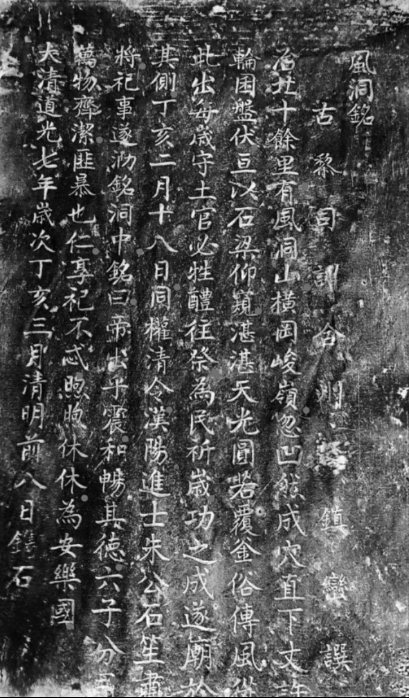 風洞銘
古黎目訓合州鎮鸞譔
治北十餘里有風洞山橫岡峻嶺忽凹然成穴直下丈許
輪囷盤伏亘以石梁仰窺湛湛天光圓若覆釜俗傳風從
此出每歲守土官必牲醴往祭為民祈歲功之成遂廟於
其側丁亥二月十八日同權清令漢陽進士朱公石笙肅
將祀事遂泐銘洞中銘曰帝出乎震和暢其德六子分
萬物齊潔匪暴也仁享祀不忒煦煦休休為安樂國
大清道光七年歲次丁亥三月清明前八日鐫石